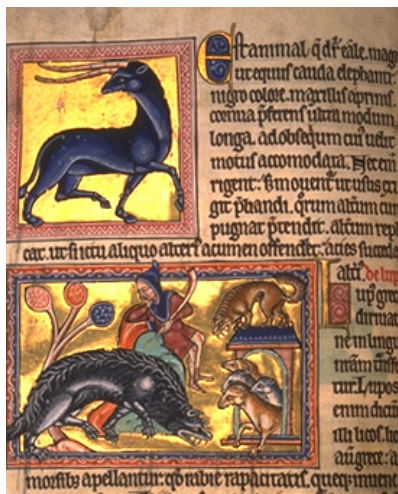 Est animal q̄ dr̄ eale. mag
ut equus cauda elephanti.
nigro colore. maxillis aprinis.
cornua p̄ferens ultra modum
longa. ad obsequium cui velit
motus accomodata. Nec enim
rigent. moventur ut usus
git p̄liandi. quorum alterum cum
pugnat p̄tendit. alterum repl
cat. ut si ictu aliquo alteri acumen offenderit. acies succeda
alt̄i. de lup
lup̄ gre
dirivat
ne in lingu
nr̄am
tur. lupos
enim
illi licos.
aū grece. a
morsibus apellantur. qd̄ rabie rapacitatis. queq̄ invenerit